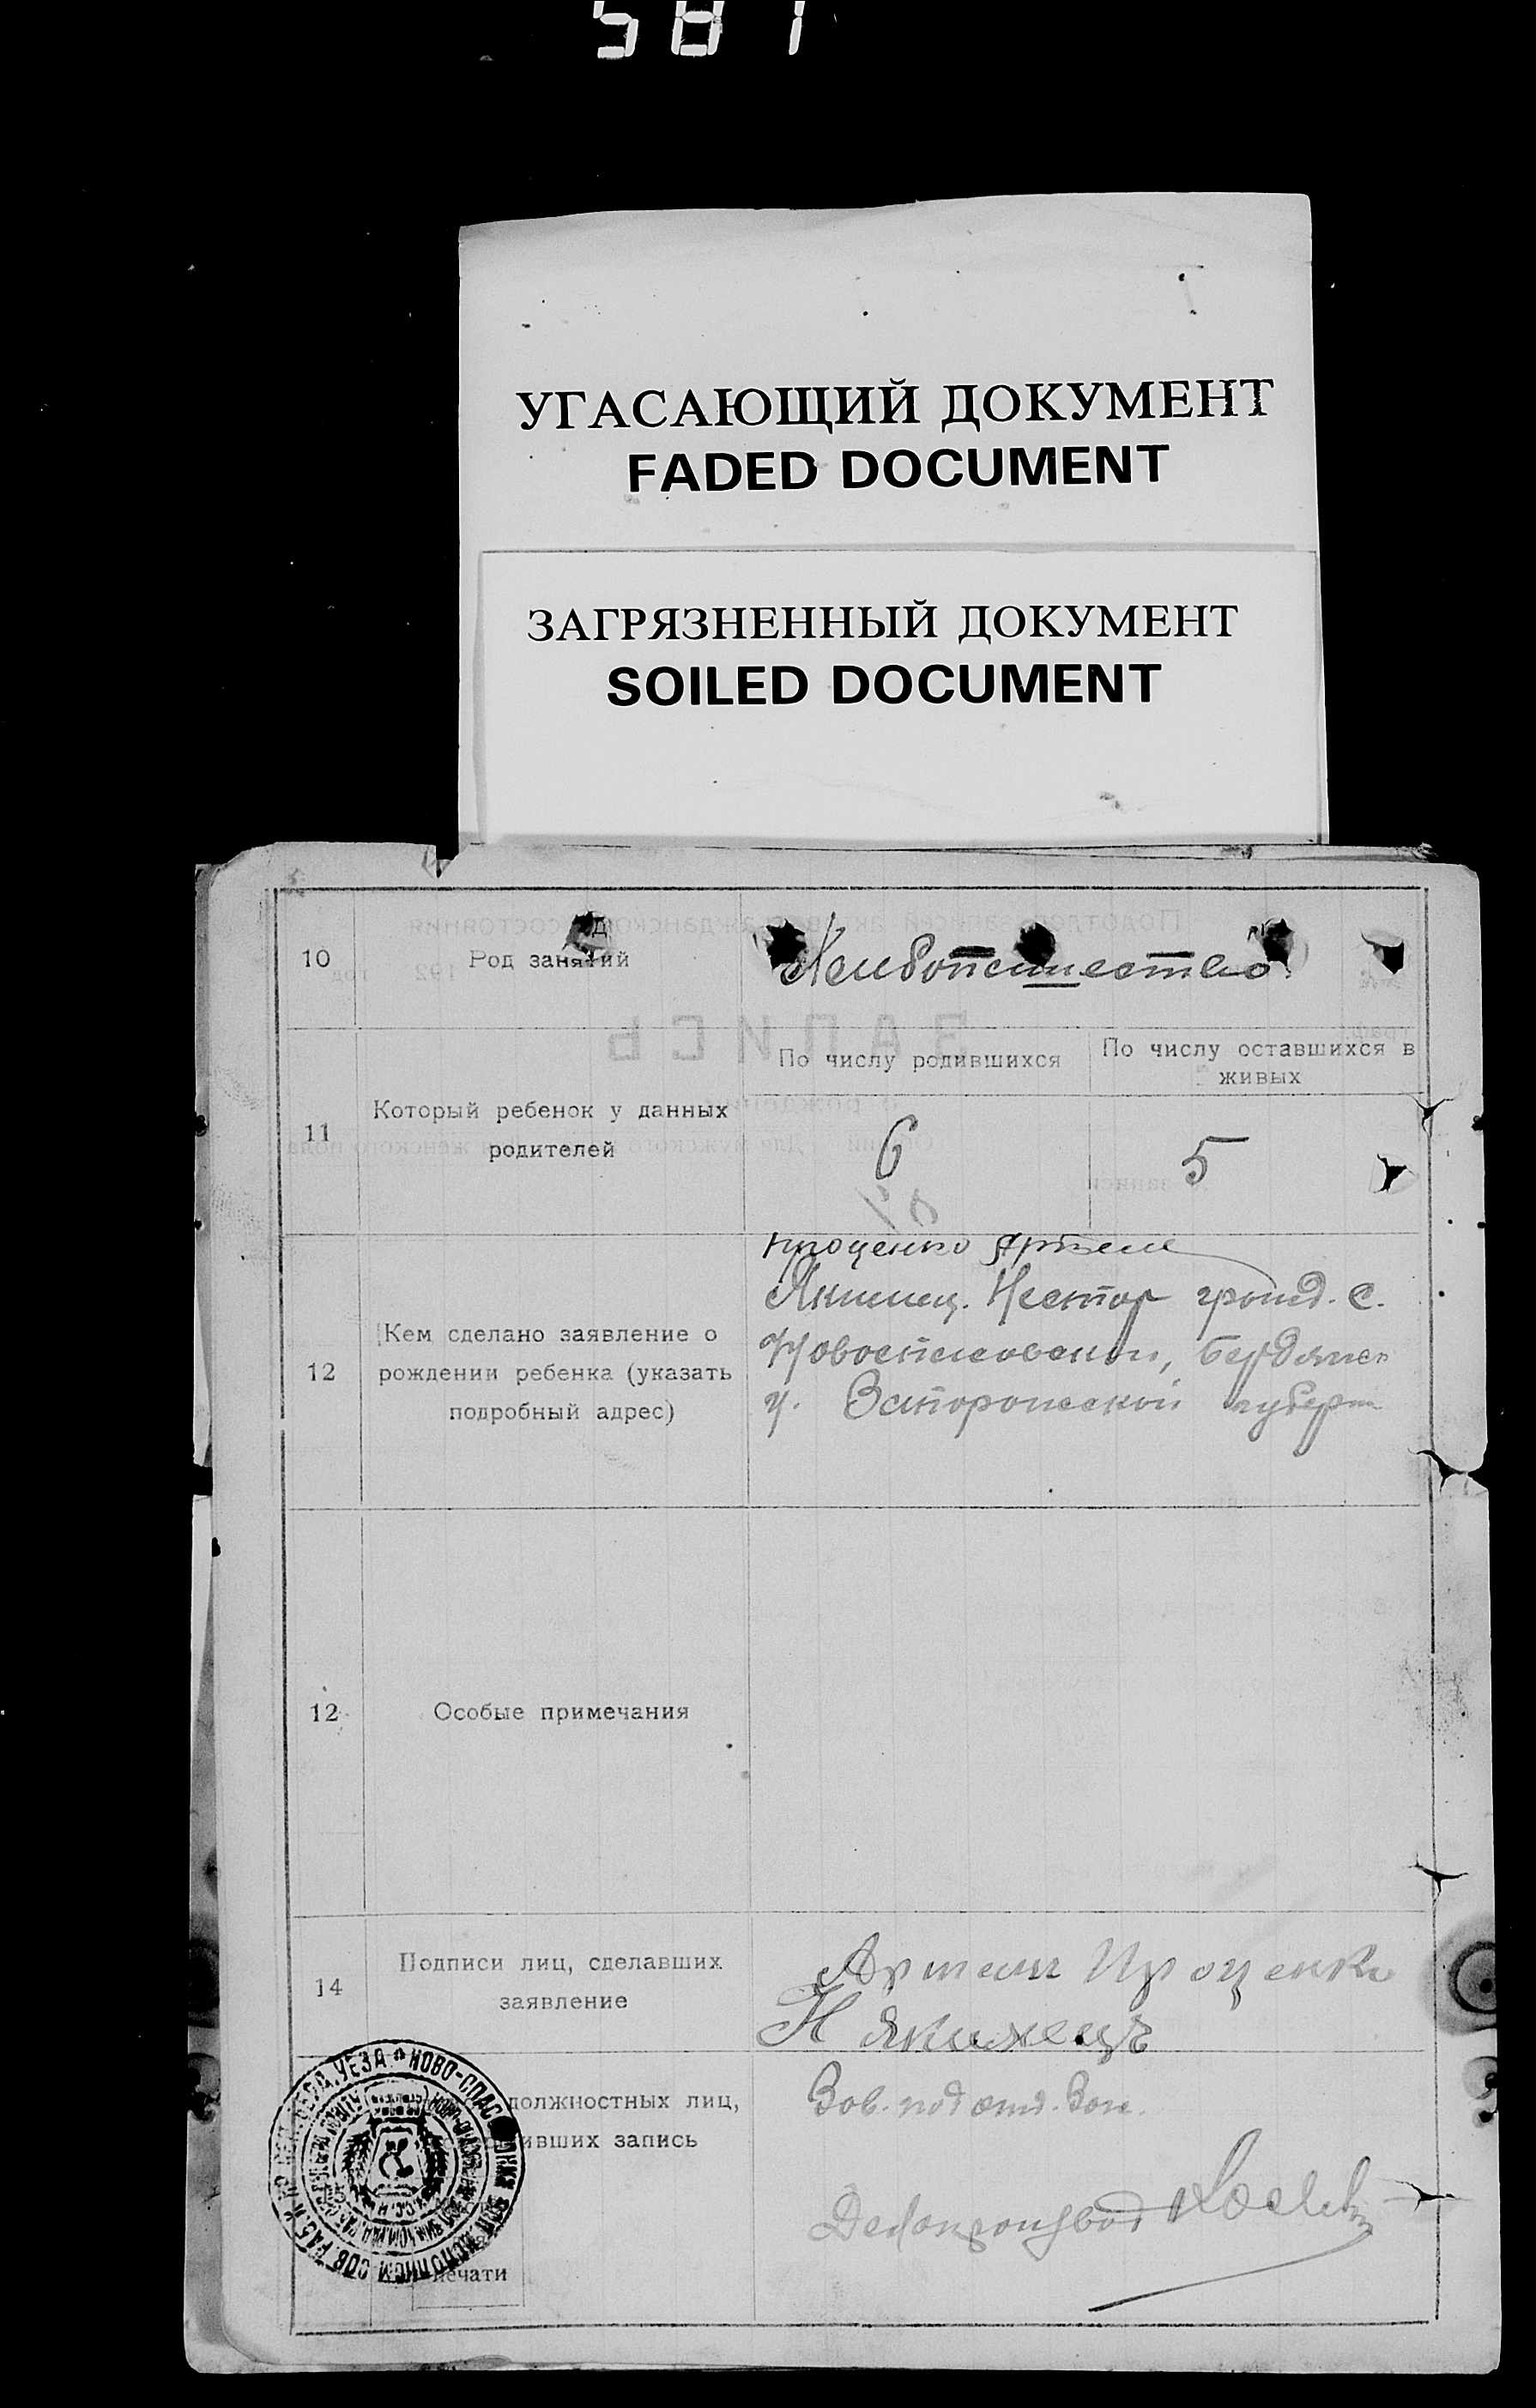 581
УГАСАЮЩИЙ ДОКУМЕНТ
FADED DOCUMENT
ЗАГРЯЗНЕННЫЙ ДОКУМЕНТ
SOILED DOCUMENT
10
Род занятий
11
Который ребенок у данных
родителей
По числу родившихся
По числу оставшихся в
живых
6
5
12
Кем сделано заявление о
рождении ребенка (указать
подробный адрес)
Проценко Артем
Якимец. Нестор гражд. с.
Новоспасовской, Бердянск
у. Запорожской губерн
12
Особые примечания
14
Подписи лиц, сделавших
заявление
Артем Проценко
Н Якимець
должностных лиц,
вших запись
Зав. под отд. Заг.
Делопроизвод
печати
УЕЗДА НОВО-СПАС